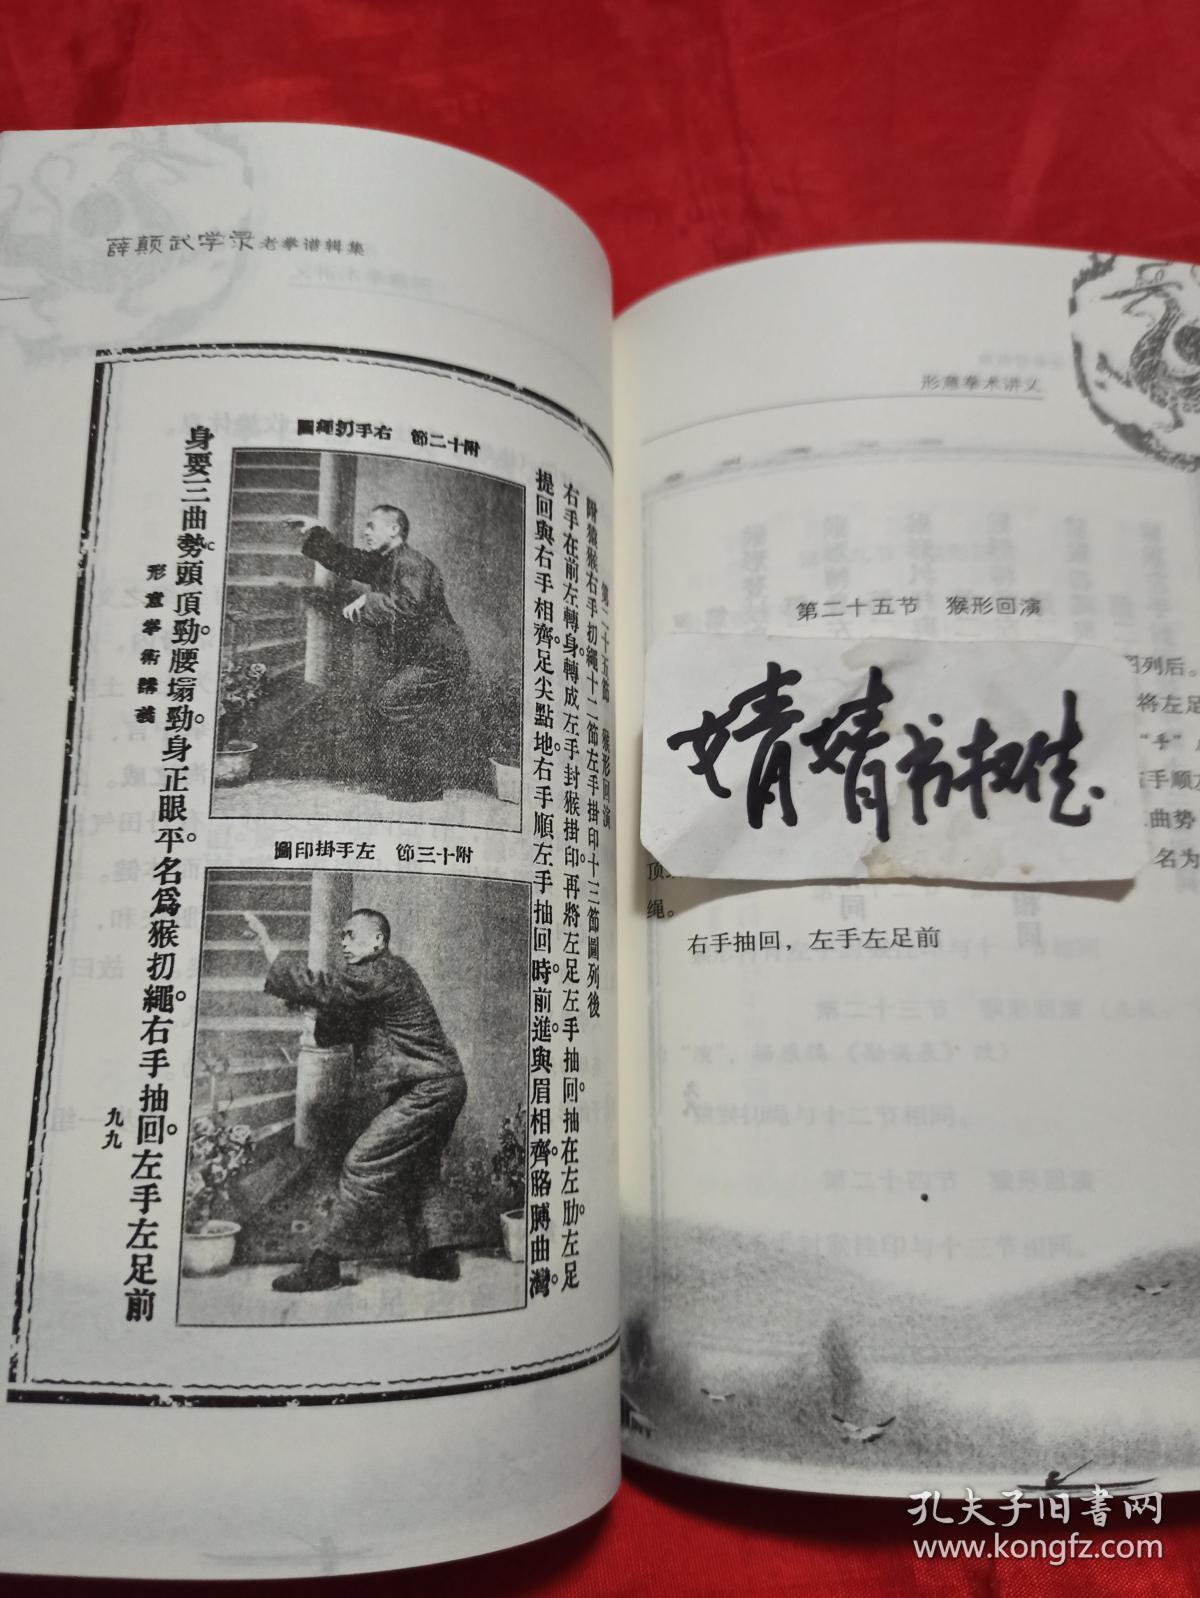 薛颠武学录老拳谱辑集
第二十五節　猴形回演
附猿猴右手扨繩十二節左手掛印十三節圖列後
右手在前左轉身。轉成左手封猴掛印。再將左足左手抽回。抽在左肋。左足
提回與右手相齊。足尖點地。右手順左手抽回時。前進。與眉相齊。胳膊曲灣。
附十二節　右手扨繩圖
附十三節　左手掛印圖
身要三曲勢。頭頂勁。腰塌勁。身正眼平。名爲猴扨繩。右手抽回。左手左足前
形意拳術講義
九九
形意拳术讲义
第二十五节　猴形回演
图列后。
将左足
“手”
手顺左
曲势
名为
顶
绳。
右手抽回，左手左足前
婧婧书
孔夫子旧书网
www.kongfz.com